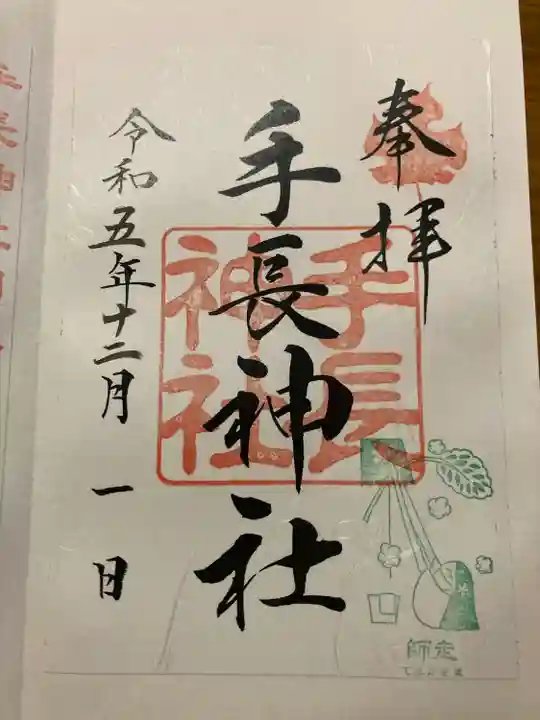 奉拝
手長神社
手長
神社
令和五年十二月一日
師走